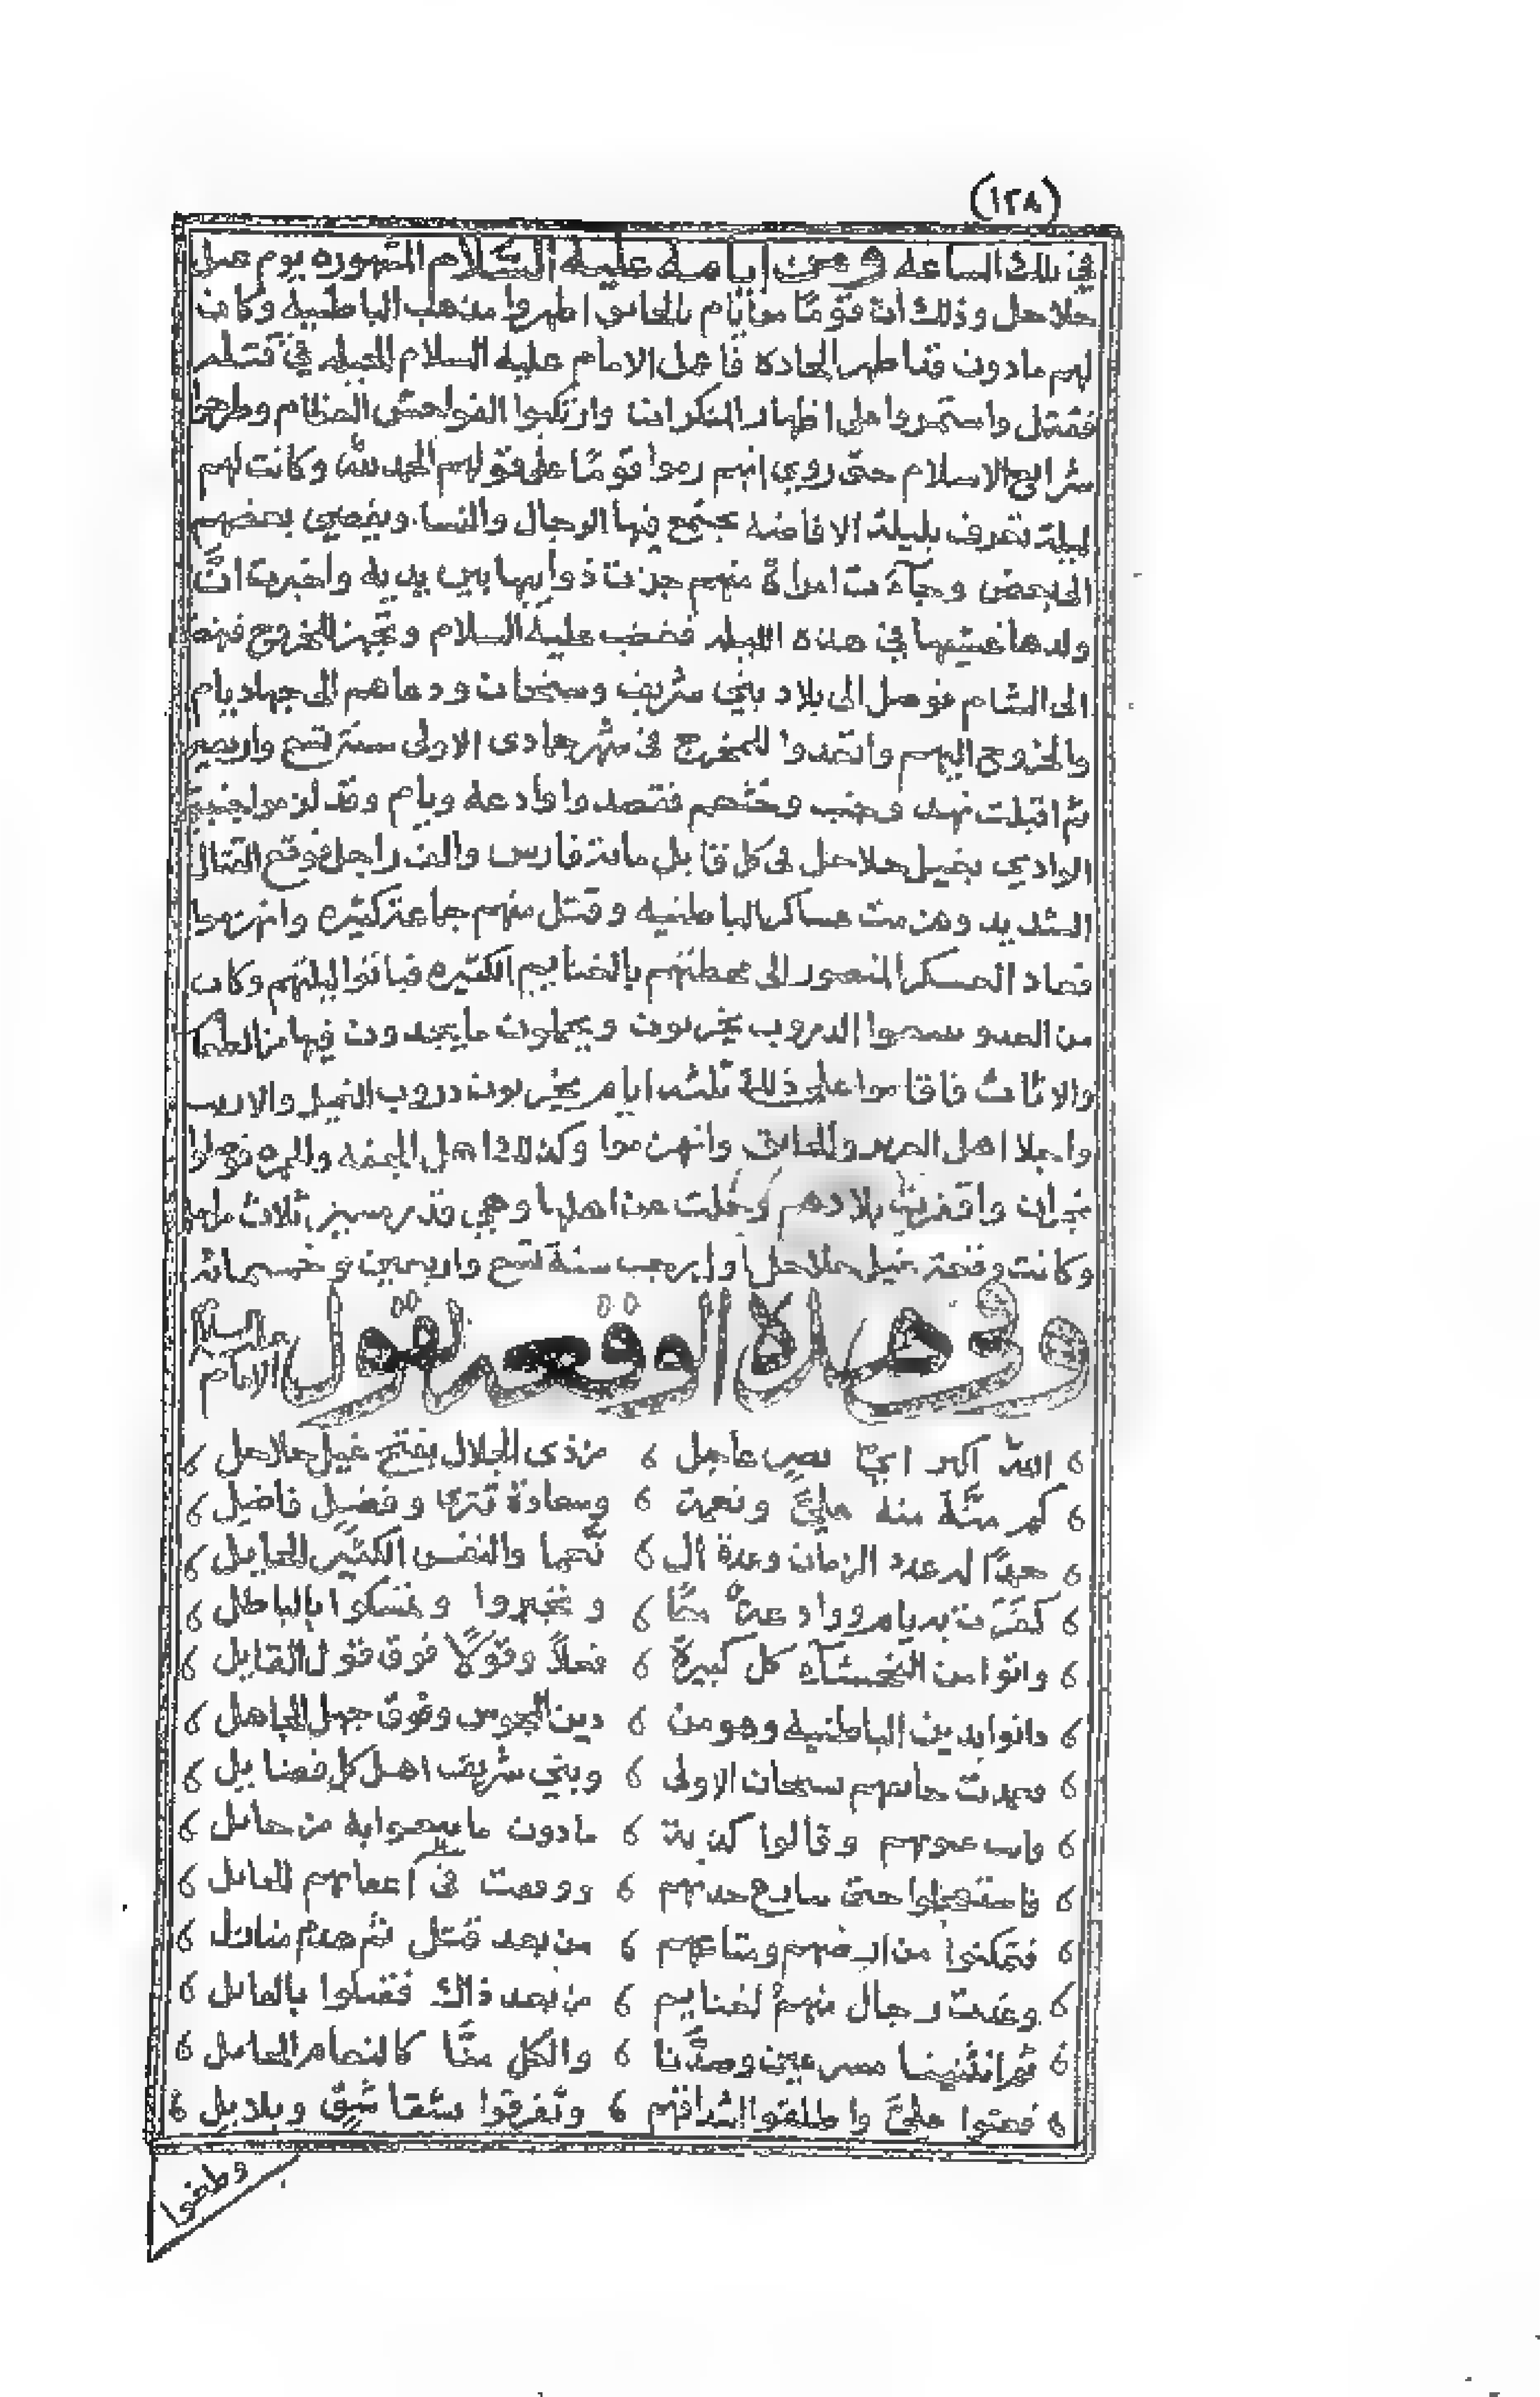 (١٢٨)
في تلك الساعه ومن ايامه عليه السلام المشهوره يوم غيل
جلاجل وذلك ان قومًا من يام بالحانق اظهروا مذهب الباطنيه وكان
لهم مادون قد اظهر الحاده فاعمل الامام عليه السلام الحيله في قتله
فقتل واستمروا على اظهار المنكرات وارتكبوا الفواحش العظام وطرحوا
شرايع الاسلام حتى روي انهم رموا قومًا على قولهم الحمد لله وكانت لهم
ليلة تعرف بليلة الافاضه يجتمع فيها الرجال والنسا ويفضي بعضهم
الى بعض وجآءت امراة منهم جزت ذوايبها بين يديه واخبرت انَّ
ولدها غشيها في هذه الليله فغضب عليه السلام وتجهز للخروج فنهض
الى الشام فوصل الى بلاد بني شريف وسنحان ودعاهم الى جهاد يام
والخروج اليهم واتعدوا للمخرج في شهر جمادى الاولى سنة تسع واربعين
ثم اقبلت نهد وجنب وخثعم فقصدوا وادعه ويام وقد لزموا جنبتي
الوادي بغيل جلاجل في كل قابل مائة فارس والف راجل فوقع القتال
الشديد وهزمت عساكر الباطنيه وقتل منهم جماعة كثيره وانهزموا
فعاد العسكر المنصور الى محطتهم بالغنايم الكثيره فباتوا ليلتهم وكان
من الغدو سمحوا الدروب يخربون ويحملون ما يجدون فيها من الطعام
والاثاث فاقاموا على ذلك ثلثه ايام يخربون دروب الغيل والارب
واجلا اهل العرير والحانق وانهزموا وكذلك اهل الجفه والهره فنزلوا
نجران واقفرت بلادهم وخلت عن اهلها وهي قدر مسيره ثلاث مراحل
وكانت وقعة غيل جلاجل اول رجب سنة تسع واربعين وخمسمائه
وفي هذه الوقعه يقول الامام عليه السلام
الله اكبر ايّ نصر عاجل من ذى الجلال بفتح غيل جلاجل
كم منَّة منه عليَّ ونعمة وسعادة تترى وفضل فاضل
حمدًا له عدد الزمان وعدة ال نّعما والنفس الكثير الحايل
كفَرَت به يام ووادعة معًا وتجبروا وتمسكوا بالباطل
واتوا من الفحشآء كل كبيرة فعلاً وقولاً فوق قول القايل
دانوا بدين الباطنيه وهو من دين المجوس وفوق جهل الجاهل
فنهدت حاسهم سنحان الاولى وبني شريف اهل كل فضايل
واب عمومهم وقالوا كذبة مادون ما سمعوا به من حامل
من بعد قتل ثم هدم منازل
فتمكنوا من ارضهم ومتاعهم
وغدت رجال منهمُ لغنايم من بعد ذاك ففشلوا بالفاشل
ثم انثنينا مسرعين وصدَّنا والكل منَّا كالنعام الجافل
فعتوا عليَّ واطلقوا اشداقهم وتفرقوا شققا شِقّ وبلابل
وطغوا